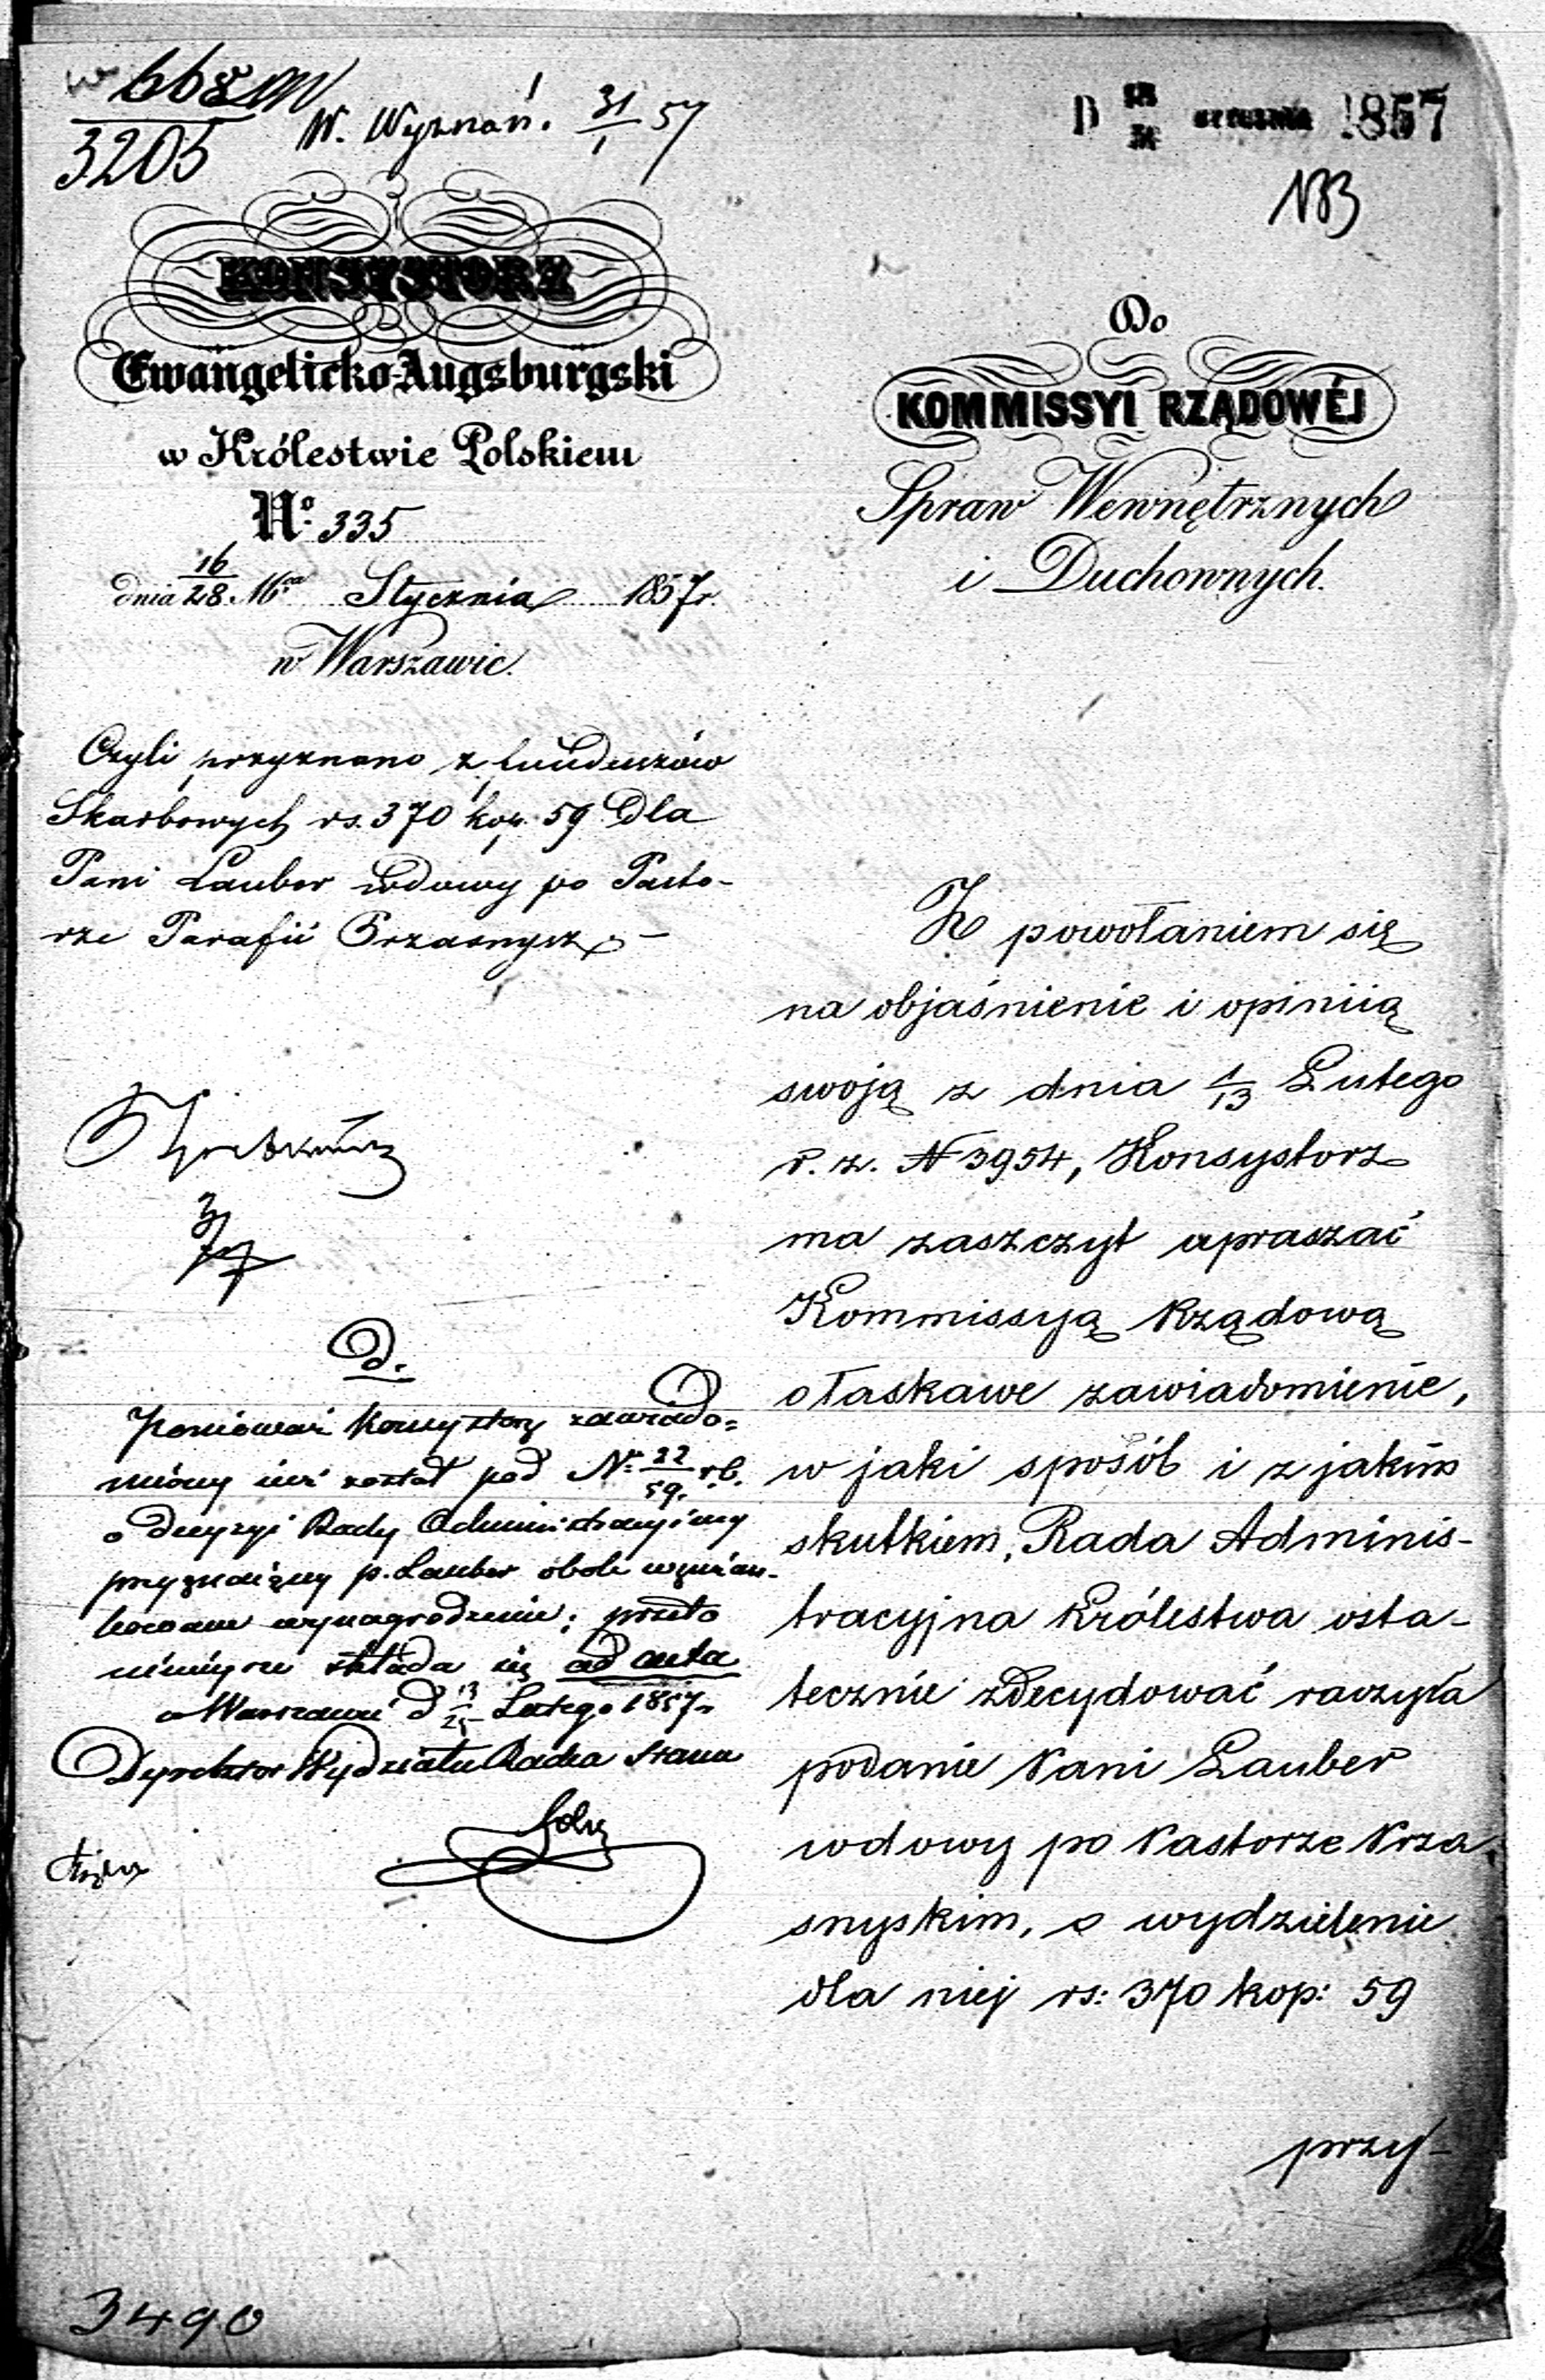 3205
W. Wyznań. 31/1 57
1857
133
KONSYSTORZ
Ewangelicko-Augsburgski
w Królestwie Polskiem
No. 335
dnia 16/28 Mca Stycznia 1857 r.
w Warszawie.
Czyli przyznano z funduszów
Skarbowych rs. 370 kop. 59 Dla
Pani Lauber wdowy po Pasto-
rze Parafii Przasnysz. –
3/
D.
Ponieważ Konsystorz zawiado=
miony już został pod No. 22/59. r.b.
o decyzyi Rady Administracyjnej
przyznającej p. Lauber obok wymian-
kowane wynagrodzenie; przeto
niniejsze składa się ad acta
w Warszawie d 13/25 Lutego 1857 r.
Dyrektor Wydziału Radca Stanu
3490
Do
KOMMISSYI RZĄDOWÉJ
Spraw Wewnętrznych
i Duchownych.
Z powołaniem się
na objaśnienie i opiniią
swoją z dnia 1/13 Lutego
r. z. N 3954, Konsystorz
ma zaszczyt upraszać
Kommissyą Rządową
o łaskawe zawiadomienie,
w jaki sposób i z jakim
skutkiem, Rada Adminis-
tracyjna Królestwa osta-
tecznie zdecydować raczyła
podanie Pani Lauber
wdowy po Pastorze Prza-
snyskim, o wydzielenie
dla niej rs: 370 kop: 59
przy-